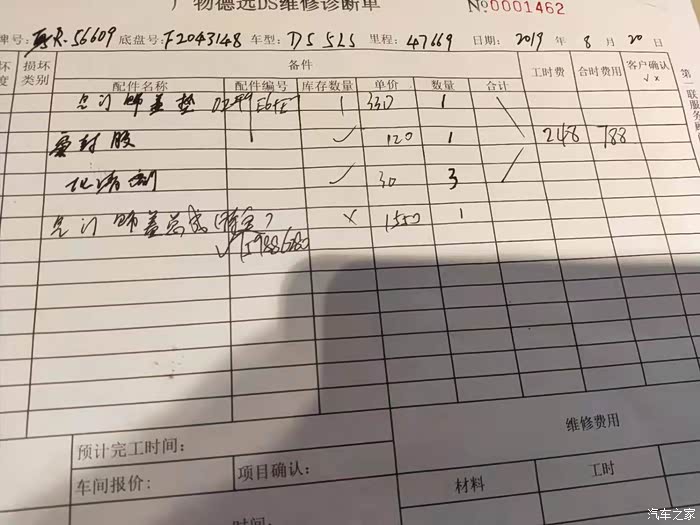 广物德远DS维修诊断单
№0001462
牌号: R-56609 底盘号: F2043148 车型: DS 5LS 里程: 47669 日期: 2019 年 8 月 20 日
坏度 损坏类别 备件 工时费 合时费用 客户确认 √ ×
配件名称 配件编号 库存数量 单价 数量 合计
气门饰盖垫 330 1
密封胶 ✓ 120 1 248 788
化清剂 ✓ 30 3
气门饰盖总成 × 1550 1
预计完工时间:
维修费用
车间报价: 项目确认:
材料 工时
时间:
第一联服务
汽车之家